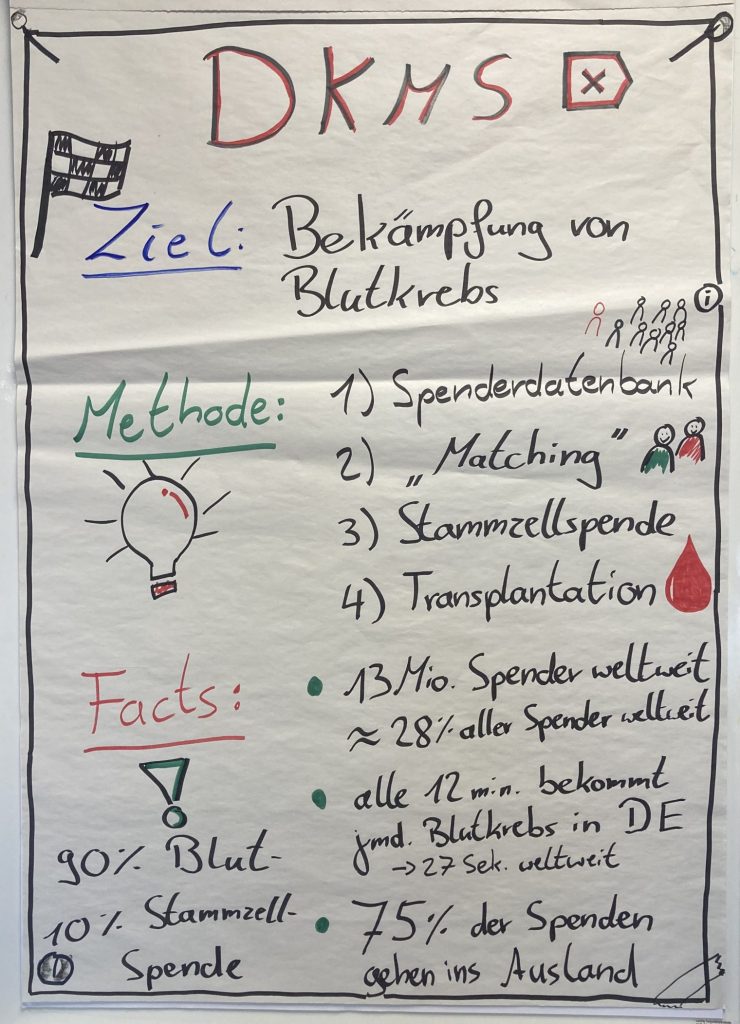 DKMS
Ziel: Bekämpfung von
Blutkrebs
i
Methode:
1) Spenderdatenbank
2) „Matching"
3) Stammzellspende
4) Transplantation
Facts:
• 13 Mio. Spender weltweit
≈ 28% aller Spender weltweit
• alle 12 min. bekommt
jmd. Blutkrebs in DE
→ 27 Sek. weltweit
• 75% der Spenden
gehen ins Ausland
90% Blut-
10% Stammzell-
Spende